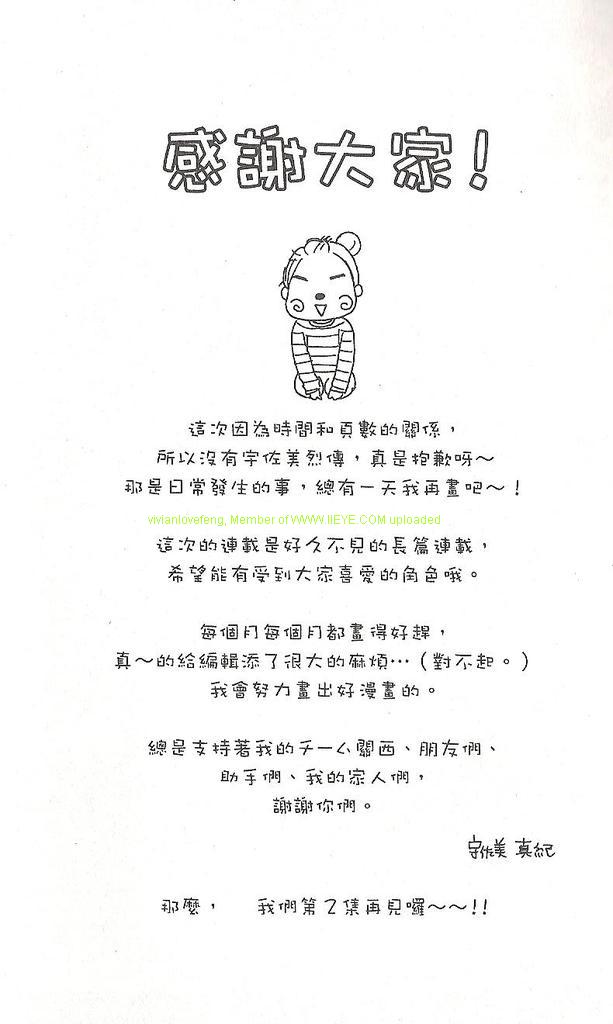 感謝大家!
這次因為時間和頁數的關係，
所以沒有宇佐美烈傳，真是抱歉呀～
那是日常發生的事，總有一天我再畫吧～！
vivianlovefeng, Member of WWW.IIEYE.COM uploaded
這次的連載是好久不見的長篇連載，
希望能有受到大家喜愛的角色哦。
每個月每個月都畫得好趕，
真～的給編輯添了很大的麻煩…（對不起。）
我會努力畫出好漫畫的。
總是支持著我的チーム關西、朋友們、
助手們、我的家人們，
謝謝你們。
宇佐美 真紀
那麼， 我們第2集再見囉～～!!